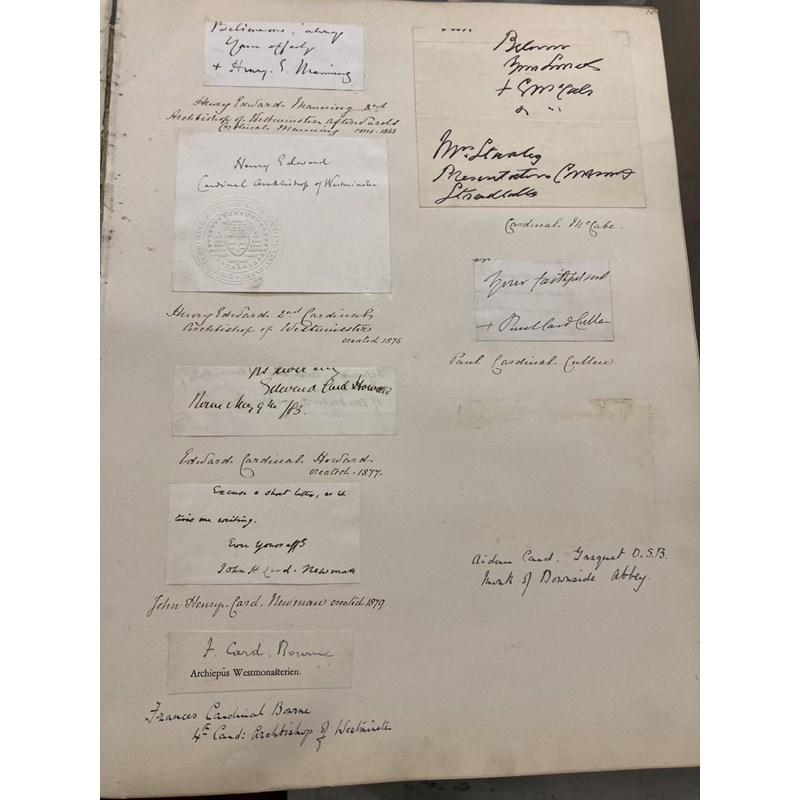 Believe me, always
Yours affectly
+ Henry E. Manning
Henry Edward Manning 2nd
Archbishop of Westminster afterwards
Cardinal Manning cons. 1865
Henry Edward
Cardinal Archbishop of Westminster
Henry Edward 2nd Cardinal
Archbishop of Westminster
created 1875
Edward Card Howard
Rome May 9th
Edward Cardinal Howard
created 1877
Excuse a short letter, as it
tires me writing.
Ever yours affly
John H Card. Newman
John Henry Card. Newman created 1879
F. Card. Bourne
Archiepūs Westmonasterien.
Frances Cardinal Bourne
4th Card: Archbishop of Westminster
Mrs. Stanley
Presentation Convent
Cardinal McCabe.
Your faithful servt
+ Paul Card Cullen
Paul Cardinal Cullen
Aidan Card. Gasquet O.S.B.
Monk of Downside Abbey.